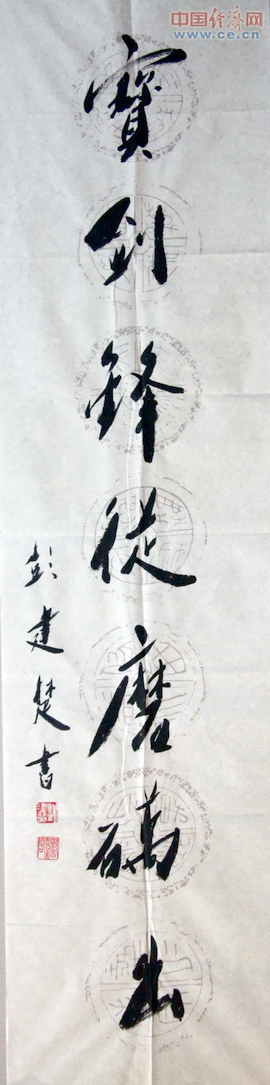 中国经济网
www.ce.cn
寶劍鋒從磨礪出
彭建楚書